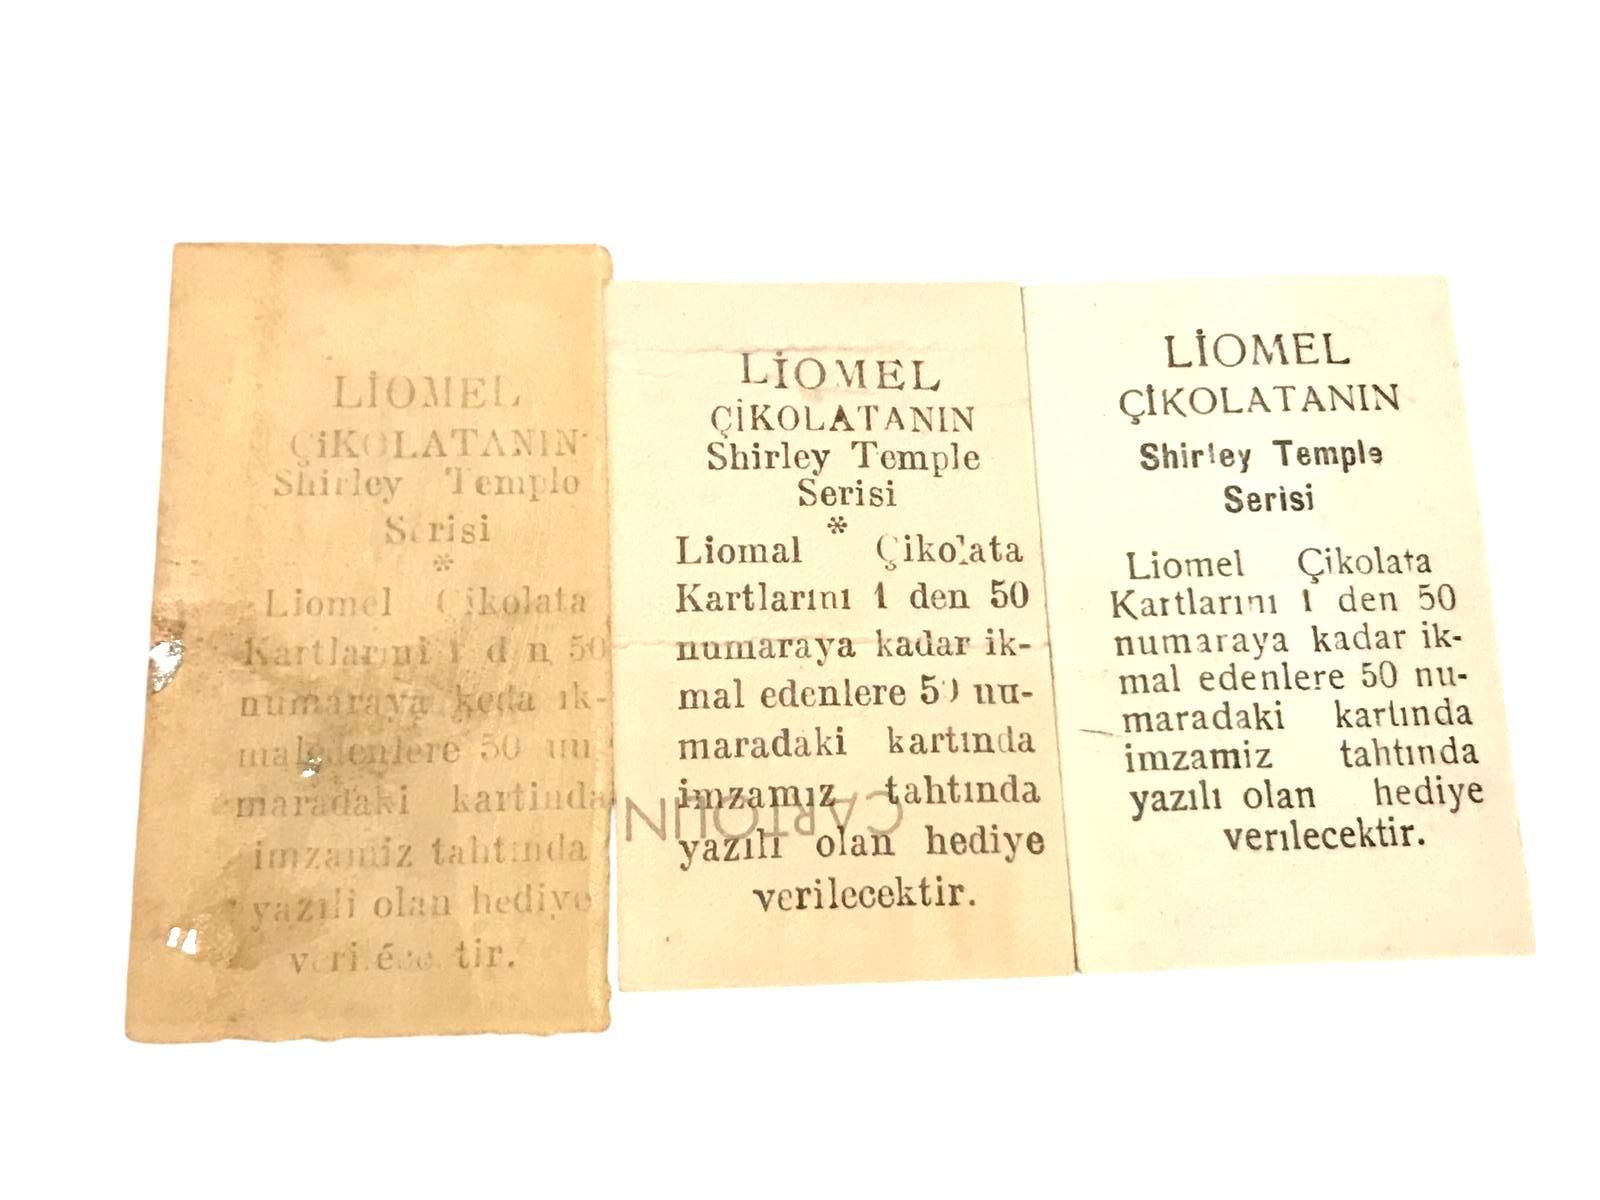 LİOMEL
ÇiKOLATANIN
Shirley Templo
Serisi
*
Liomel Çikolata
Kartlarıni 1 d n 50
numaraya keda ık-
mal edenlere 50 nu
maradaki kartinda
imzamiz tahtında
yazıli olan hediye
tir.
LİOMEL
ÇİKOLATANIN
Shirley Temple
Serisi
*
Liomal Çikolata
Kartlarını 1 den 50
numaraya kadar ik-
mal edenlere 50 nu-
maradaki kartında
imzamız tahtında
CARTOLIN
yazılı olan hediye
verilecektir.
LİOMEL
ÇİKOLATANIN
Shirley Temple
Serisi
Liomel Çikolata
Kartlarını 1 den 50
numaraya kadar ik-
mal edenlere 50 nu-
maradaki kartında
imzamiz tahtında
yazılı olan hediye
verılecektir.